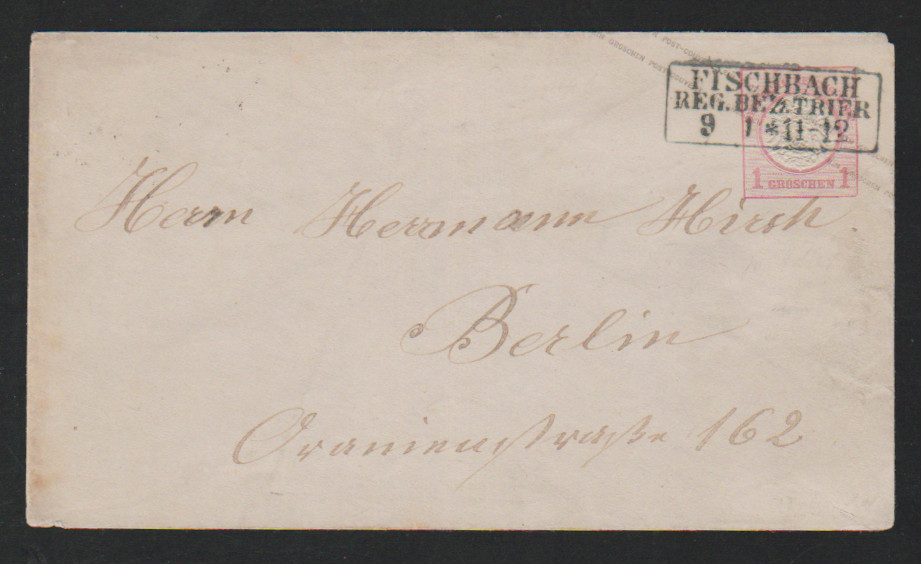 FISCHBACH
REG. BEZ. TRIER
9 1 * 11-12
1 GROSCHEN 1
Herrn Herrmann Hirsch.
Berlin
Oranienstraße 162